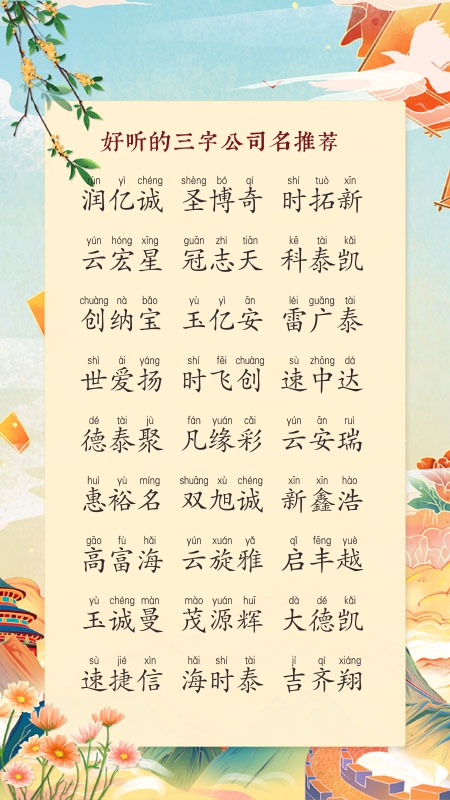 好听的三字公司名推荐
rùn yì chéng shèng bó qí shí tuò xīn
润亿诚 圣博奇 时拓新
yún hóng xīng guān zhì tiān kē tài kǎi
云宏星 冠志天 科泰凯
chuàng nà bǎo yù yì ān léi guǎng tài
创纳宝 玉亿安 雷广泰
shì ài yáng shí fēi chuàng sù zhōng dá
世爱扬 时飞创 速中达
dé tài jù fán yuán cǎi yún ān ruì
德泰聚 凡缘彩 云安瑞
huì yù míng shuāng xù chéng xīn xīn hào
惠裕名 双旭诚 新鑫浩
gāo fù hǎi yún xuán yǎ qǐ fēng yuè
高富海 云旋雅 启丰越
yù chéng màn mào yuán huī dà dé kǎi
玉诚曼 茂源辉 大德凯
sù jié xìn hǎi shí tài jí qí xiáng
速捷信 海时泰 吉齐翔